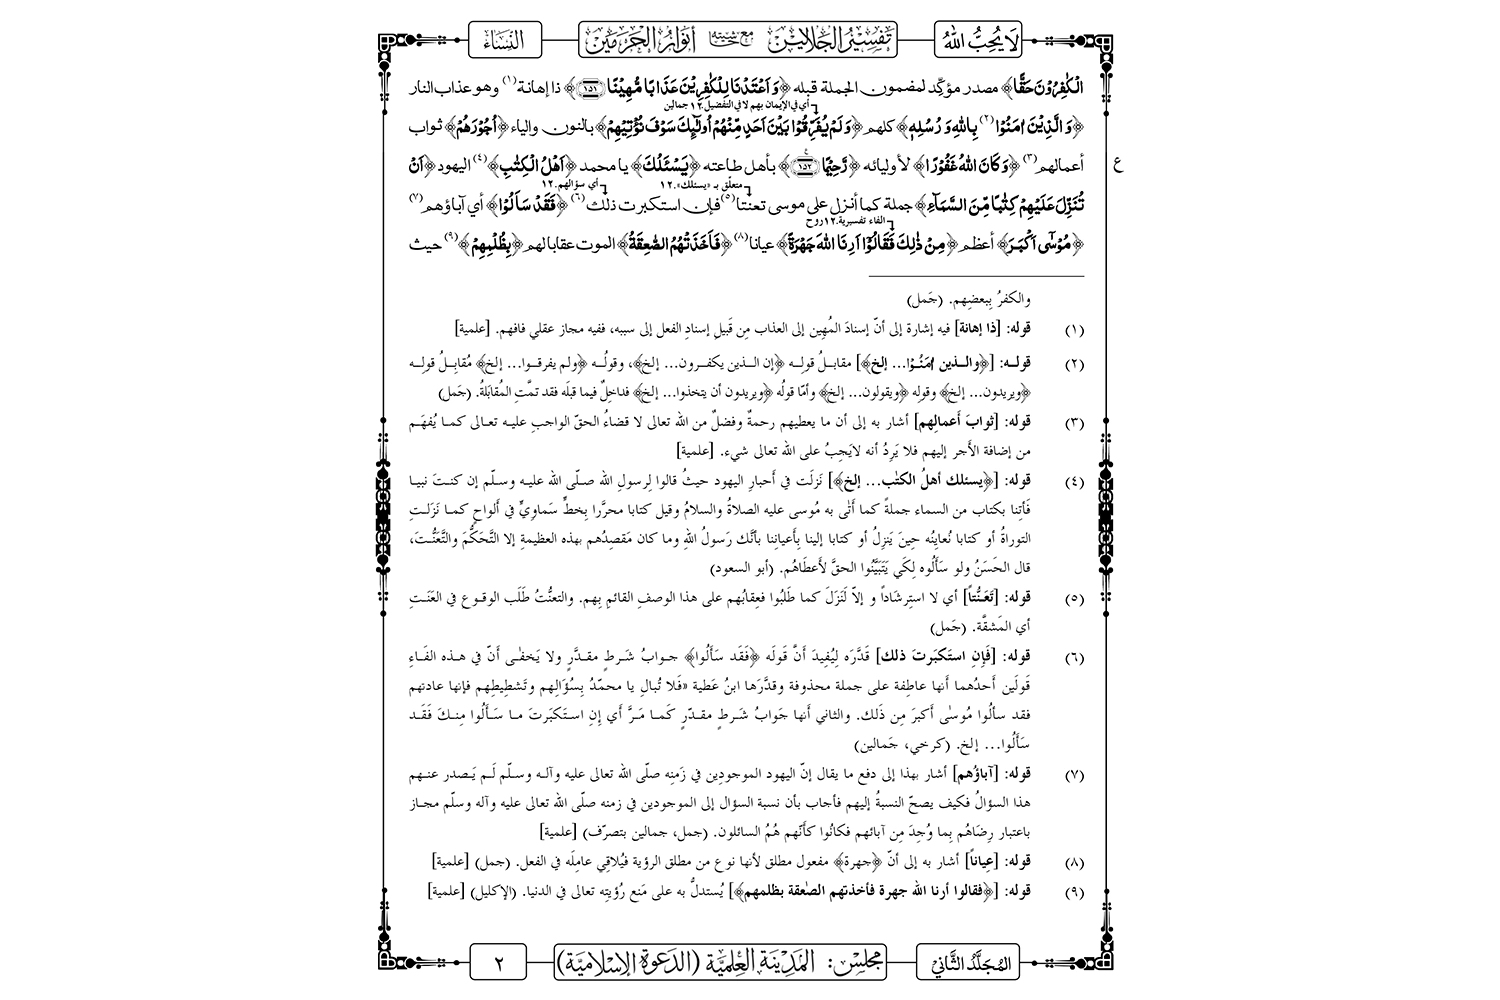 لَا يُحِبُّ اللهُ
تَفْسِيْرُ الْجَلَالَيْنِ مع حاشيته أَنْوَارُ الْحَرَمَيْن
النِّسَاءُ
الْكٰفِرُوْنَ حَقًّا﴾ مصدر مؤكّد لمضمون الجملة قبله ﴿وَاَعْتَدْنَا لِلْكٰفِرِيْنَ عَذَابًا مُّهِيْنًا ﴿۱۵۱﴾﴾ ذا إهانة(١) وهو عذاب النار
أي في الإيمان بهم لا في التفضيل.١٢ جمالين
﴿وَالَّذِيْنَ اٰمَنُوْا(٢) بِاللهِ وَرُسُلِهٖ﴾ كلهم ﴿وَلَمْ يُفَرِّقُوْا بَيْنَ اَحَدٍ مِّنْهُمْ اُولٰٓئِكَ سَوْفَ نُؤْتِيْهِمْ﴾ بالنون والياء ﴿اُجُوْرَهُمْ﴾ ثواب
أعمالهم(٣) ﴿وَكَانَ اللهُ غَفُوْرًا﴾ لأوليائه ﴿رَّحِيْمًا ﴿۱۵۲﴾﴾ بأهل طاعته ﴿يَسْئَلُكَ﴾ يا محمد ﴿اَهْلُ الْكِتٰبِ﴾(٤) اليهود ﴿اَنْ
ع
متعلّق بـ «يسئلك».١٢
أي سؤالهم.١٢
تُنَزِّلَ عَلَيْهِمْ كِتٰبًا مِّنَ السَّمَآءِ﴾ جملة كما أنزل على موسى تعنتا(٥) فإن استكبرت ذلك(٦) ﴿فَقَدْ سَاَلُوْا﴾ أي آباؤهم(٧)
الفاء تفسيرية.١٢ روح
﴿مُوْسٰٓى اَكْبَرَ﴾ أعظم ﴿مِنْ ذٰلِكَ فَقَالُوْٓا اَرِنَا اللهَ جَهْرَةً﴾ عيانا(٨) ﴿فَاَخَذَتْهُمُ الصّٰعِقَةُ﴾ الموت عقابا لهم ﴿بِظُلْمِهِمْ﴾(٩) حيث
والكفرُ بِبعضِهم. (جَمل)
(١) قوله: [ذا إهانة] فيه إشارة إلى أنّ إسنادَ المُهِين إلى العذاب مِن قَبيلِ إسنادِ الفعل إلى سببه، ففيه مجاز عقلي فافهم. [علمية]
(٢) قولـه: [﴿والـذين اٰمَنُوْا... إلخ﴾] مقابـلُ قولـه ﴿إن الـذين يكفـرون... إلخ﴾، وقولُـه ﴿ولم يفرقـوا... إلخ﴾ مُقابِـلُ قولِـه
﴿ويريدون... إلخ﴾ وقوله ﴿ويقولون... إلخ﴾ وأمّا قولُه ﴿ويريدون أن يتخذوا... إلخ﴾ فداخِلٌ فيما قبلَه فقد تمَّتِ المُقابَلةُ. (جَمل)
(٣) قوله: [ثوابَ أَعمالِهم] أشار به إلى أن ما يعطيهم رحمةٌ وفضلٌ من الله تعالى لا قضاءُ الحقّ الواجبِ عليـه تعـالى كمـا يُفهَـم
من إضافة الأَجر إليهم فلا يَرِدُ أنه لايَجبُ على الله تعالى شيء. [علمية]
(٤) قوله: [﴿يسئلك أهلُ الكتٰب... إلخ﴾] نَزلَت في أَحبارِ اليهود حيثُ قالوا لِرسولِ الله صلّى الله عليـه وسـلّم إن كنـتَ نبيـا
فَأتِنا بكتاب من السماء جملةً كما أَتٰى به مُوسى عليه الصلاةُ والسلامُ وقيل كتابا محرَّرا بِخطٍّ سَماوِيٍّ في أَلواحٍ كمـا نَزَلَـتِ
التوراةُ أو كتابا نُعايِنُه حِينَ يَنزِلُ أو كتابا إلينا بِأَعيانِنا بأنَّك رَسولُ اللهِ وما كان مَقصِدُهم بهذه العظيمةِ إلا التَّحَكُّمَ والتَّعَنُّتَ،
قال الحَسَنُ ولو سَأَلُوه لِكَي يَتَبَيَّنُوا الحقَّ لأَعطَاهُم. (أبو السعود)
(٥) قوله: [تَعَنُّتاً] أي لا استِرشَاداً و إلاّ لَنَزَلَ كما طَلَبُوا فعِقابُهم على هذا الوصفِ القائمِ بهم. والتعنُّتُ طَلَب الوقـوع في العَنَـتِ
أي المَشقَّة. (جَمل)
(٦) قوله: [فَإنِ استَكبَرتَ ذلك] قَدَّرَه لِيُفِيدَ أنَّ قَولَه ﴿فَقَد سَأَلُوا﴾ جـوابُ شَـرطٍ مقـدَّرٍ ولا يَخفٰـى أنّ في هـذه الفَـاءِ
قَولَين أَحدُهما أَنها عاطِفة على جملة محذوفة وقدَّرَها ابنُ عَطية «فَلا تُبالِ يا محمّدُ بِسُؤَالِهم وتَشطِيطِهم فإنها عادتهم
فقد سألُوا مُوسٰى أكبَرَ مِن ذَلك. والثاني أَنها جَوابُ شَـرطٍ مقـدّرٍ كَمـا مَـرَّ أي إِنِ استَكبَرتَ مـا سَـأَلُوا مِنـكَ فَقَـد
سَأَلُوا... إلخ. (كرخي، جَمالين)
(٧) قوله: [آباؤُهم] أشار بهذا إلى دفع ما يقال إنّ اليهود الموجودِين في زَمنِه صلّى الله تعالى عليه وآلـه وسـلّم لَـم يَـصدر عنـهم
هذا السؤالُ فكيف يصحّ النسبةُ إليهم فأجاب بأن نسبة السؤال إلى الموجودين في زمنه صلّى الله تعالى عليه وآله وسلّم مجـاز
باعتبار رِضَاهُم بِما وُجِدَ مِن آبائهم فكانُوا كأنّهم هُمُ السائلون. (جمل، جمالين بتصرّف) [علمية]
(٨) قوله: [عِياناً] أشار به إلى أنّ ﴿جهرة﴾ مفعول مطلق لأنها نوع من مطلق الرؤية فيُلاقِي عامِلَه في الفعل. (جمل) [علمية]
(٩) قوله: [﴿فقالوا أرنا الله جهرة فأخذتهم الصٰعقة بظلمهم﴾] يُستدلُّ به على مَنع رُؤيتِه تعالى في الدنيا. (الإكليل) [علمية]
المُجَلَّدُ الثَّانِيْ
مجلس: المَدِيْنَة العِلْمِيَّة (الدَّعوة الإسلاميَّة)
٢